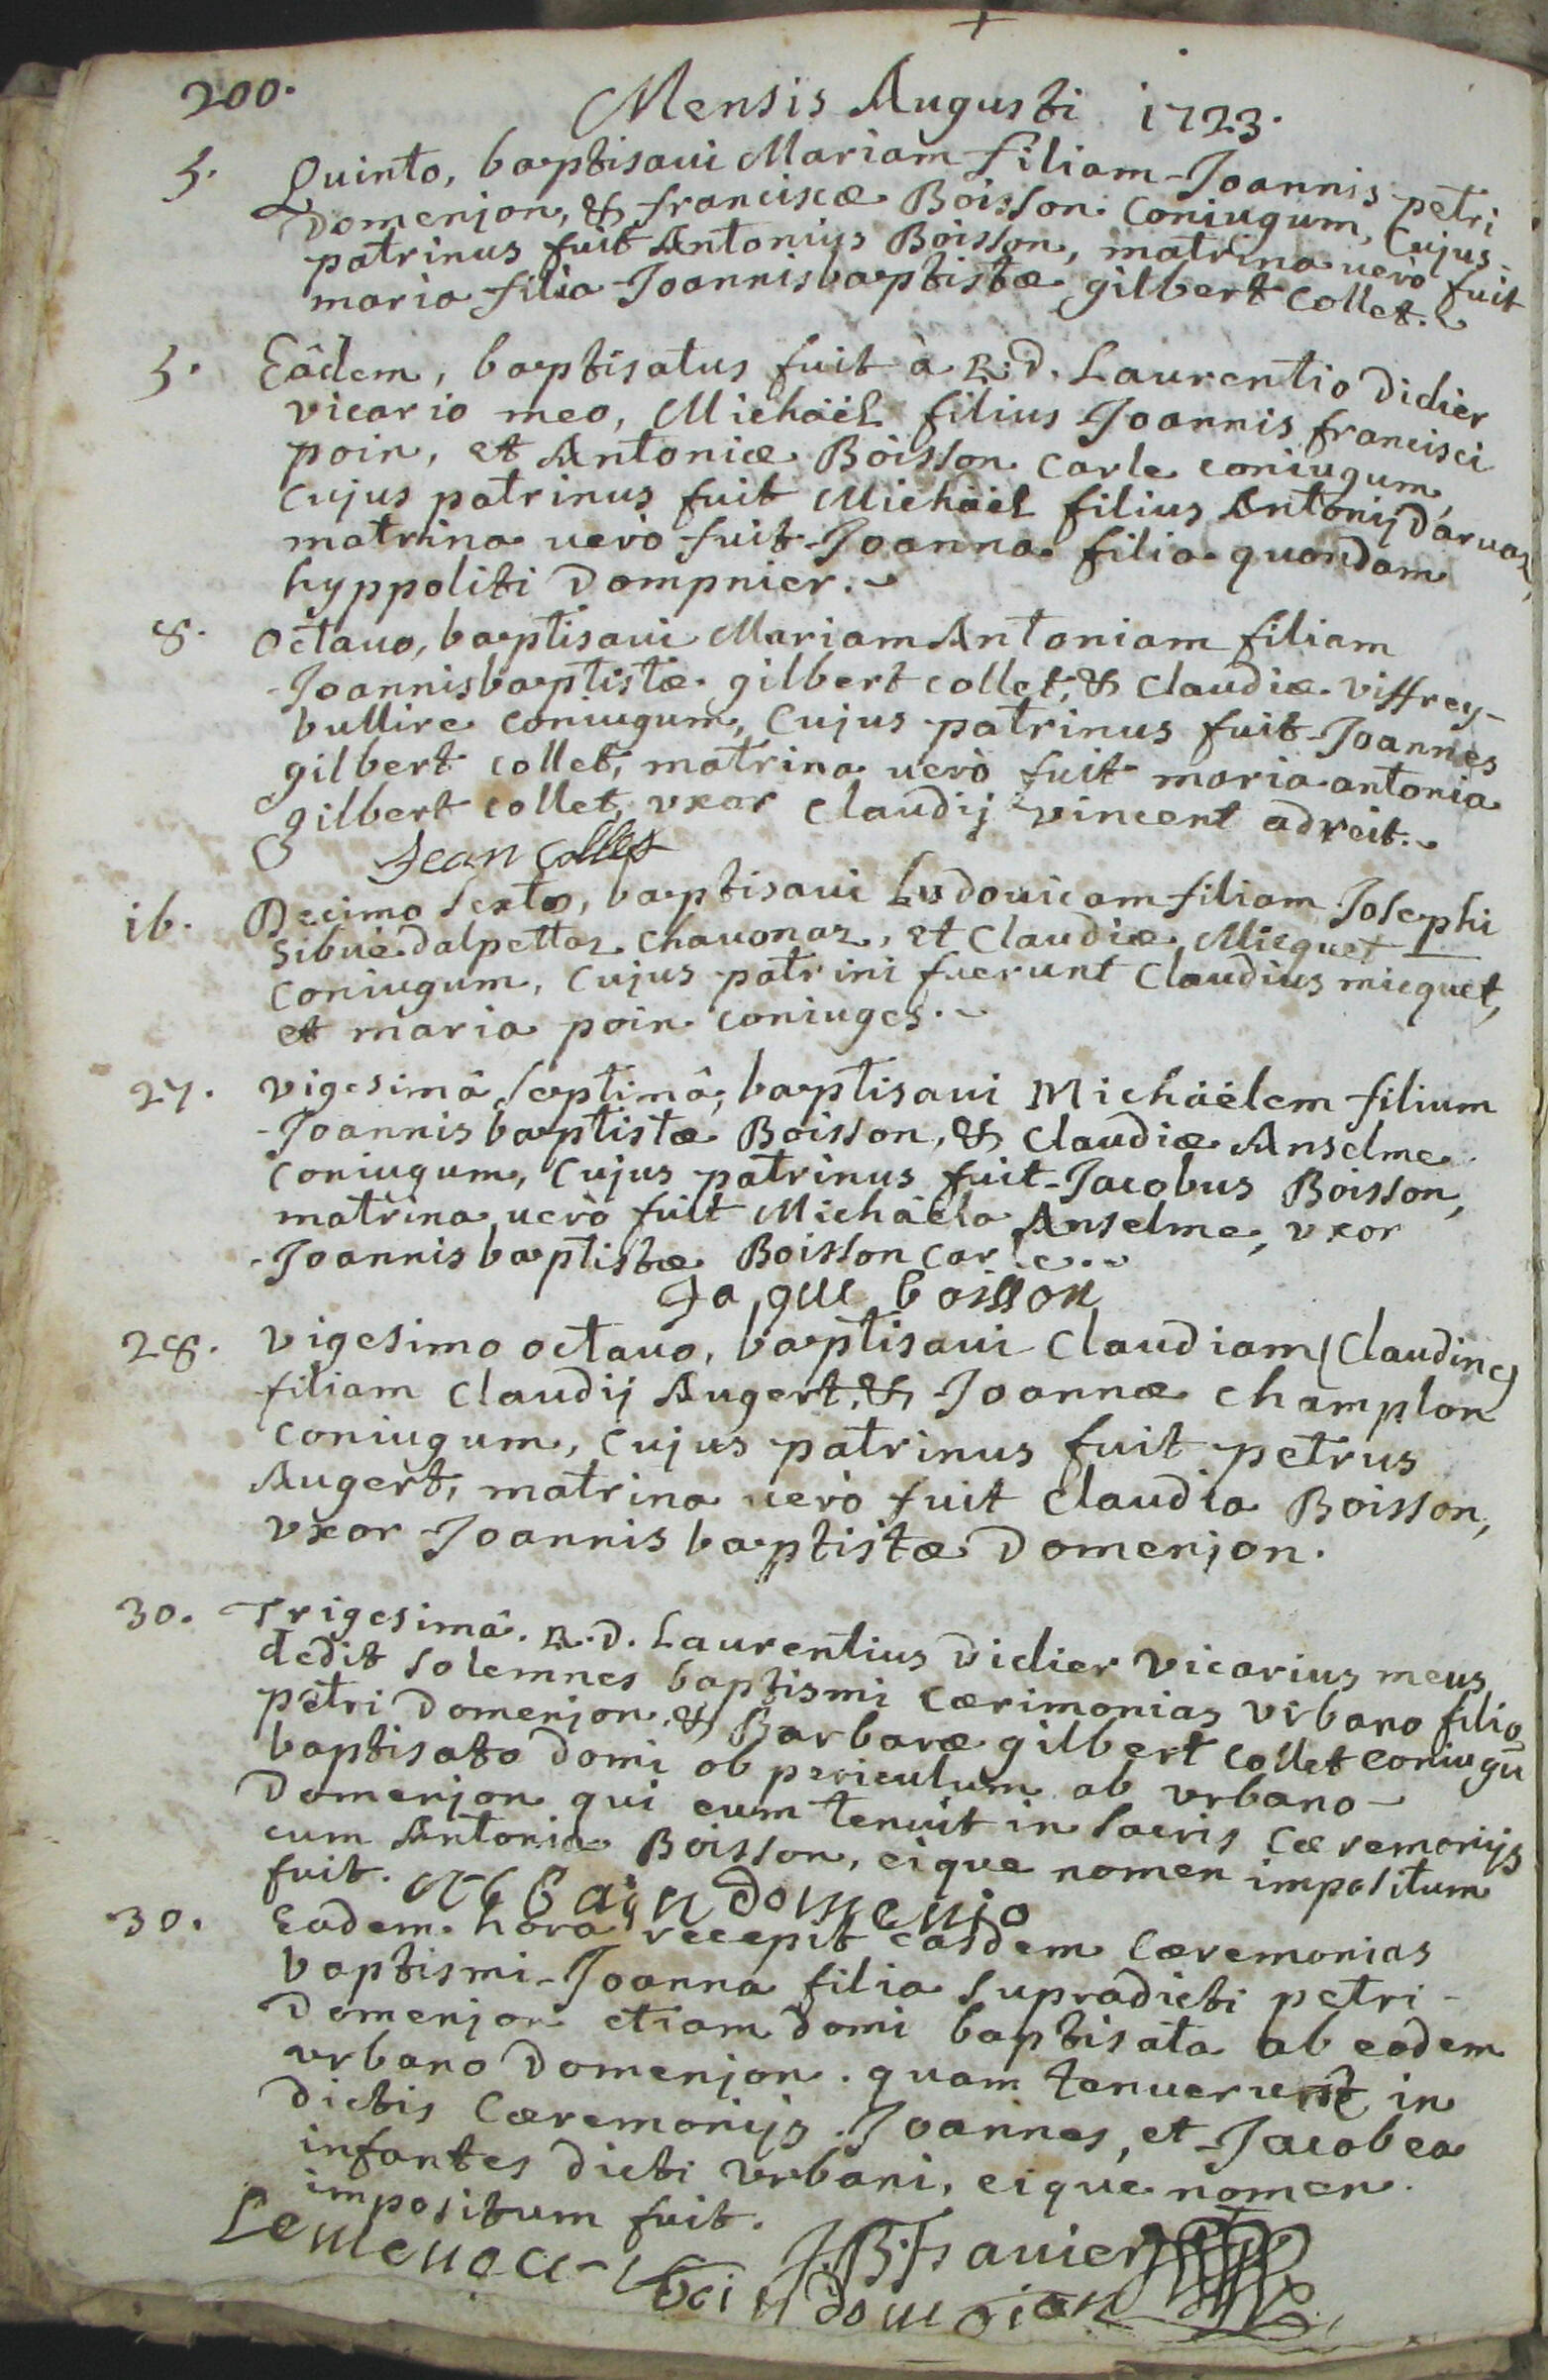 200.
Mensis Augusti 1723.
5. Quinto, baptisaui Mariam filiam Joannis petri
Domenjon, & franciscæ Boisson coniugum, Cujus
patrinus fuit Antonius Boisson, matrina uerò fuit
maria filia Joannisbaptistæ gilbert collet.
5. Eâdem, baptisatus fuit à R.d. Laurentio Didier
vicario meo, Michäel filius Joannis francisci
poin, et Antoniæ Boisson carle coniugum,
cujus patrinus fuit Michäel filius Antonij daruaz,
matrina uerò fuit Joanna filia quondam
hyppoliti Dompnier.
8. Octauo, baptisaui Mariam Antoniam filiam
Joannisbaptistæ gilbert collet, & Claudiæ viffrey-
bullire coniugum, Cujus patrinus fuit Joannes
gilbert collet, matrina uerò fuit maria antonia
gilbert collet, vxor Claudij vincent adreit.
Jean Colles
16. Decimo sexto, baptisaui Ludouicam filiam Josephi
Sibué dalpettaz chauonaz, et Claudiæ Micquet
coniugum, Cujus patrini fuerunt Claudius micquet,
et maria poin coniuges.
27. vigesimâ septimâ, baptisaui Michäelem filium
Joannisbaptistæ Boisson, & Claudiæ Anselme
coniugum, Cujus patrinus fuit Jacobus Boisson,
matrina uerò fuit Michäela Anselme, vxor
Joannisbaptistæ Boisson carle.
Jaque boisson
28. vigesimo octauo, baptisaui Claudiam (Claudine)
filiam Claudij Augert, & Joannæ champlon
coniugum, cujus patrinus fuit petrus
Augert, matrina uerò fuit Claudia Boisson,
vxor Joannis baptistæ Domenjon.
30. Trigesimâ. R.D. Laurentius Didier vicarius meus
dedit solemnes baptismi cærimonias vrbano filio
petri Domenjon, & Barbaræ gilbert collet coniugū
baptisato domi ob periculum ab vrbano
Domenjon qui eum tenuit in sacris Cæremonijs
cum Antonia Boisson, eique nomen impositum
fuit.
30. Eadem hora recepit easdem Cæremonias
baptismi Joanna filia supradicti petri
Domenjon etiam domi baptisata ab eodem
vrbano Domenjon. quam tenuerunt in
dictis Cæremonijs Joannes, et Jacobea
infantes dicti vrbani, eique nomen
impositum fuit.